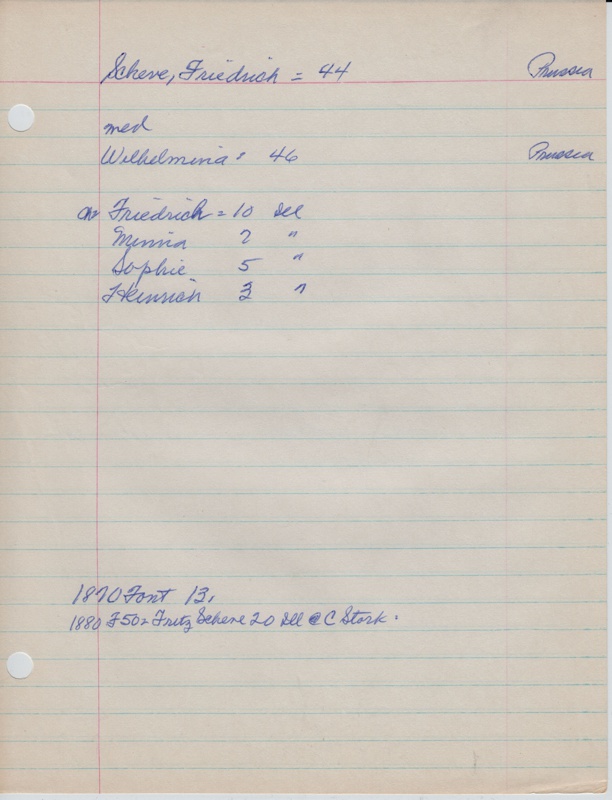 Scheve, Friedrich = 44 Prussia
med
Wilhelmina = 46 Prussia
ch Friedrich = 10 Ill
Minnia 7 "
Sophie 5 "
Heinrich 3 "
1870 Font 13,
1880 F50 Fritz Scheve 20 Ill @ C Stork.